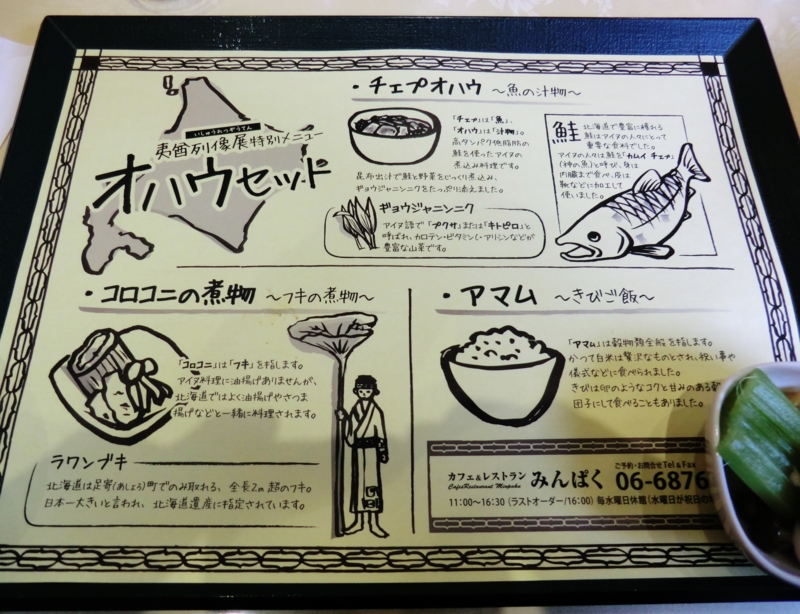 いしゅうれつぞうてん
夷酋列像展特別メニュー
オハウセット
・チェプオハウ ～魚の汁物～
「チェプ」は「魚」、
「オハウ」は「汁物」。
高タンパク低脂肪の
鮭を使ったアイヌの
煮込み料理です。
昆布出汁で鮭と野菜をじっくり煮込み、
ギョウジャニンニクをたっぷり添えました。
ギョウジャニンニク
アイヌ語で「プクサ」または「キトピロ」と
呼ばれ、カロテン・ビタミンC・アリシンなどが
豊富な山菜です。
鮭
北海道で豊富に穫れる
鮭はアイヌの人々にとって
重要な食料でした。
アイヌの人々は鮭を「カムイ チェプ」
(神の魚)と呼び、身は
内臓まで食べ、皮は
靴などに加工して
使いました。
・コロコニの煮物 ～フキの煮物～
「コロコニ」は「フキ」を指します。
アイヌ料理に油揚げありませんが、
北海道ではよく油揚げやさつま
揚げなどと一緒に料理されます。
ラワンブキ
北海道は足寄(あしょろ)町でのみ取れる、全長2m超のフキ。
日本一大きいと言われ、北海道遺産に指定されています。
・アマム ～きびご飯～
「アマム」は穀物類全般を指します。
かつて白米は贅沢なものとされ、祝い事や
儀式などに食べられました。
きびは卵のようなコクと甘みのある
団子にして食べることもありました。
カフェ&レストラン みんぱく
Cafe&Restaurant Minpaku
ご予約・お問合せ Tel & Fax
06-6876
11:00～16:30 (ラストオーダー/16:00) 毎水曜日休館(水曜日が祝日の